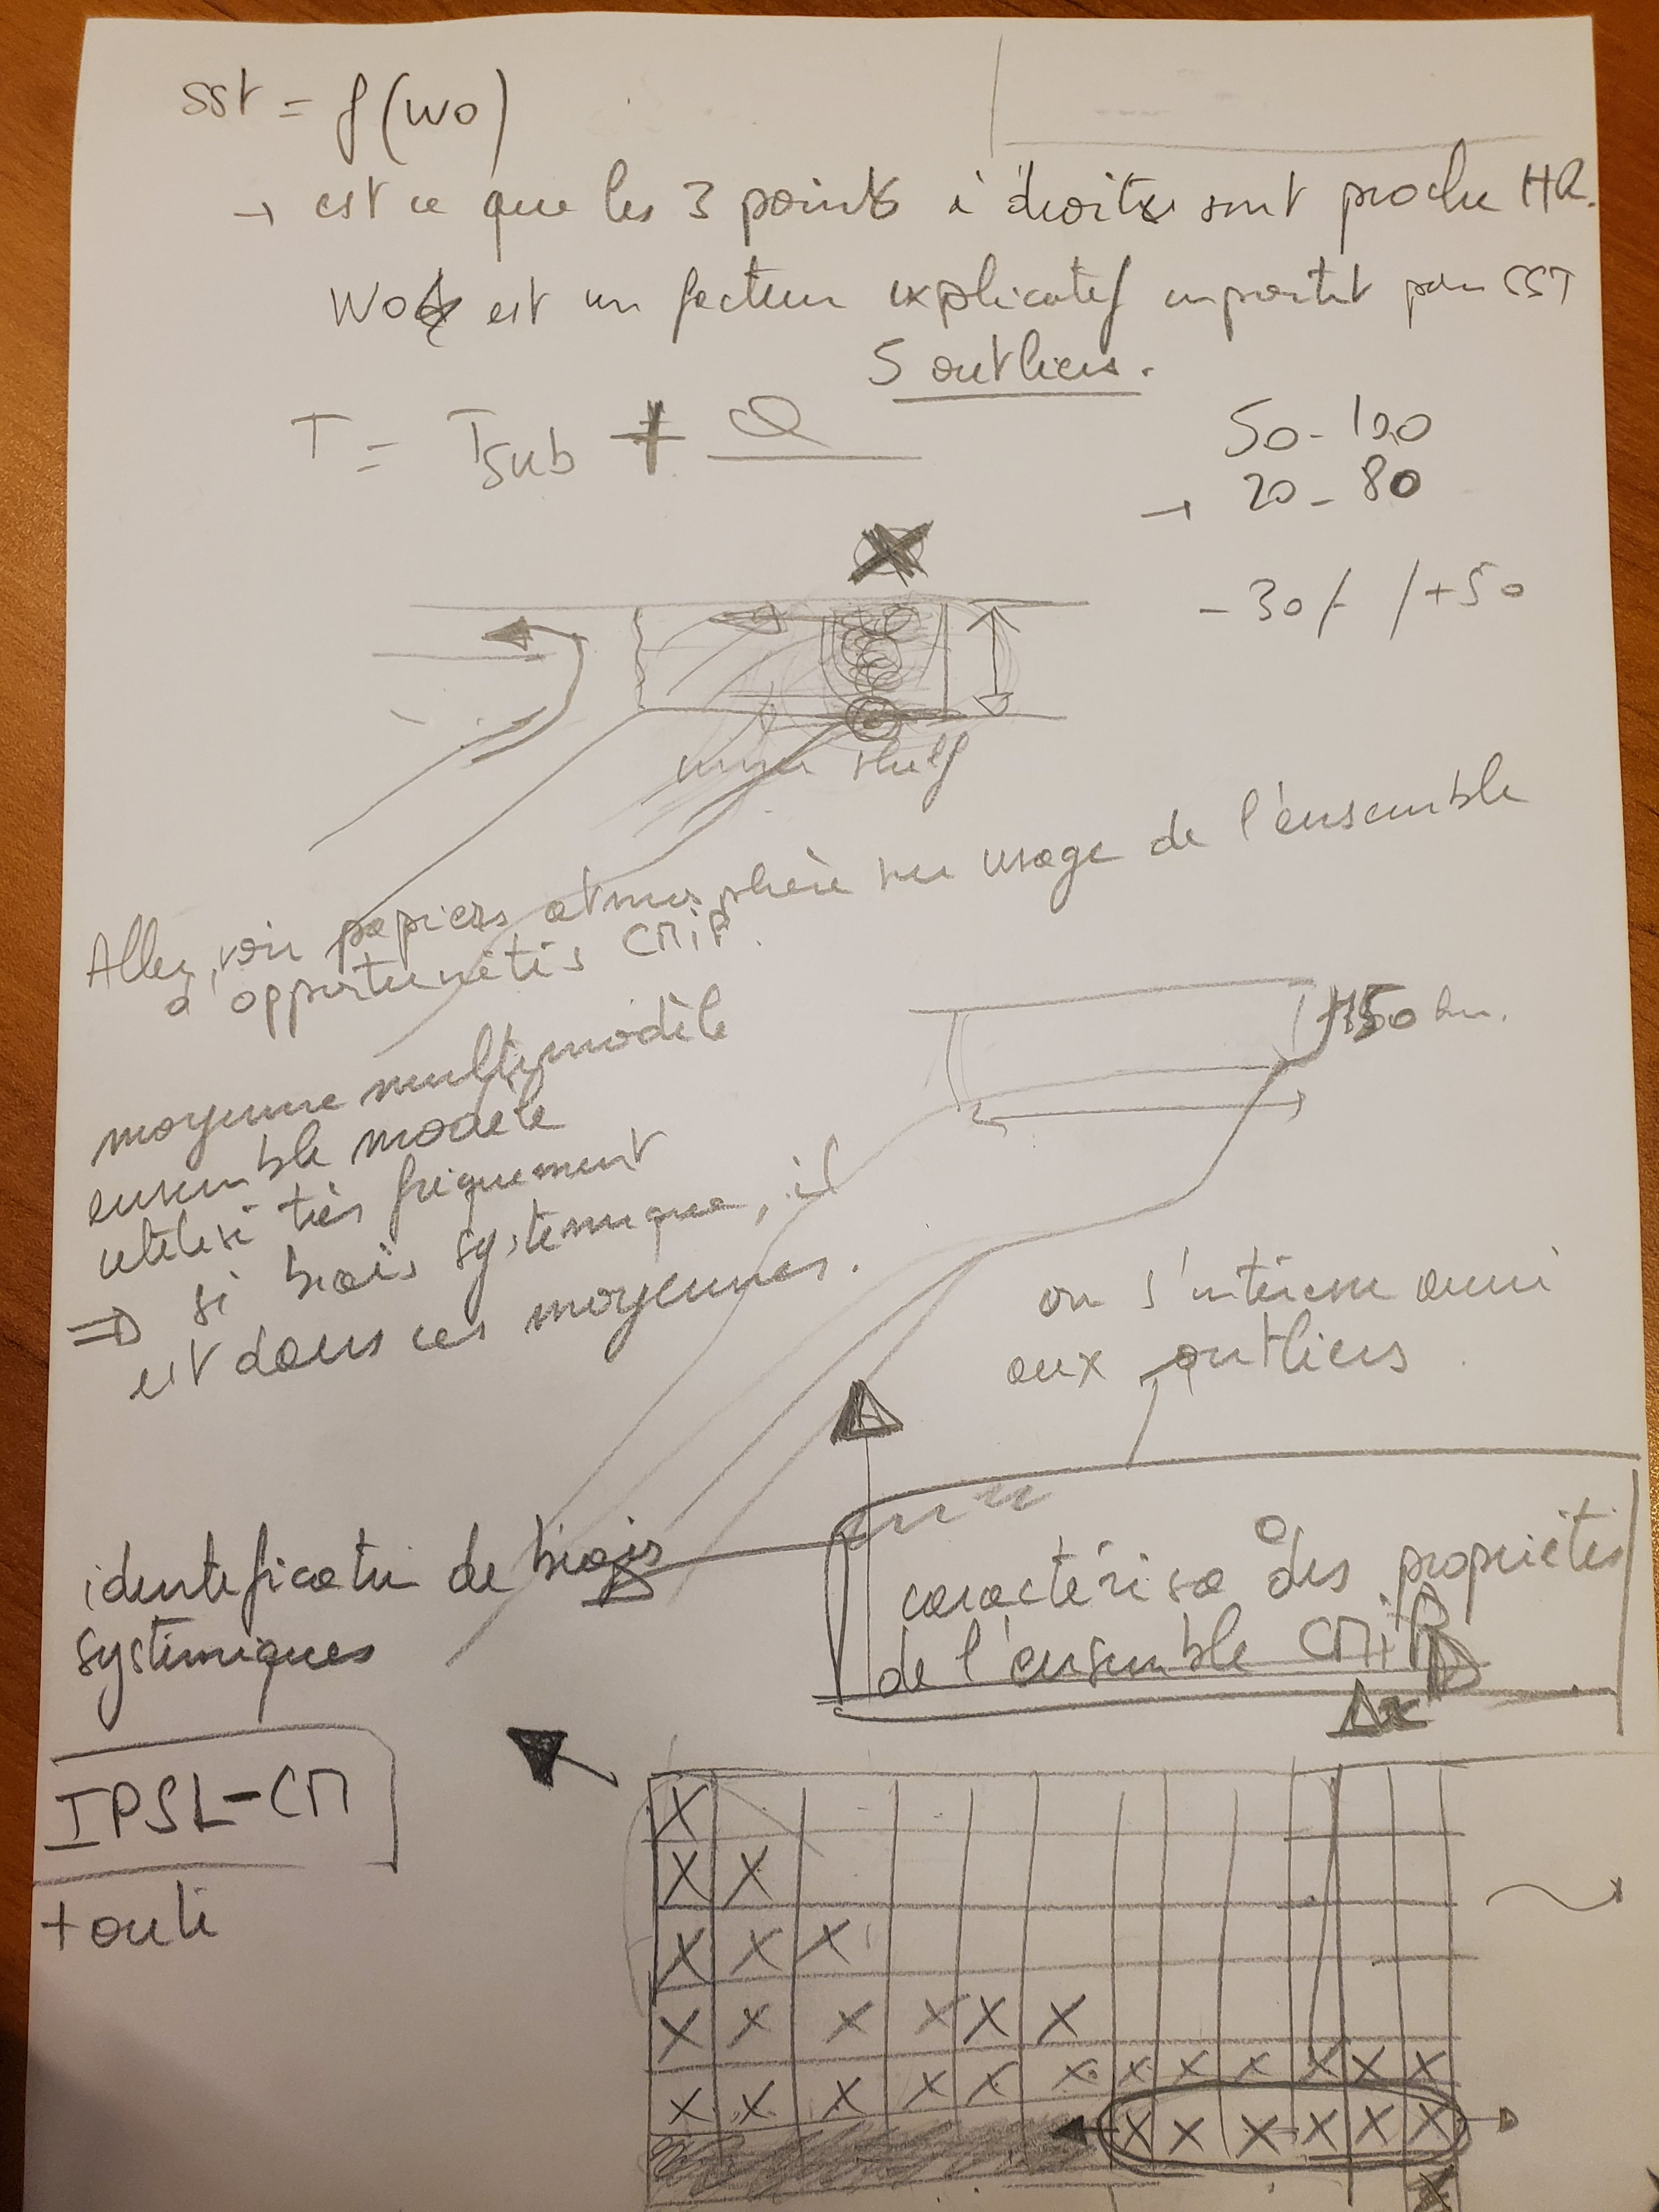 SST = f(wo)
→ est ce que les 3 points à droite sont proche HR.
Wo est un facteur explicatif importt pour SST
5 outliers.
T = Tsub + Q
50 - 100
→ 20 - 80
-30/- /+50
shelf
Aller voir papiers atmosphère sur usage de l'ensemble
d'opportunités CMIP.
moyenne multimodèle
ensemble modèle
utilisé très fréquement
⇒ si biais systémique, il
est dans ces moyennes.
50 km.
on s'intéresse aussi
aux outliers
identification de biais
systémiques
caractérisa° des propriétés
de l'ensemble CMIP
Δx
IPSL-CM
+ outi
X
X X
X X X
X X X X X X
X X X X X X X X X X X X
X X X X X X